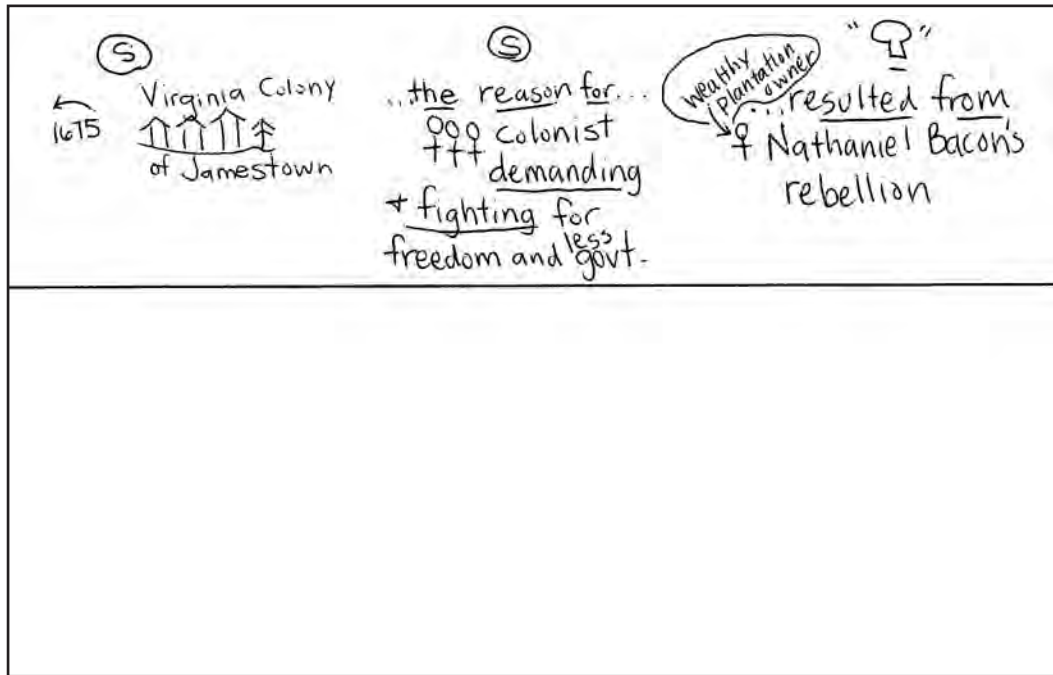 S
1675
Virginia Colony
of Jamestown
S
...the reason for...
colonist
demanding
+ fighting for
freedom and less govt.
" "
wealthy
plantation
owner
...resulted from
Nathaniel Bacon's
rebellion